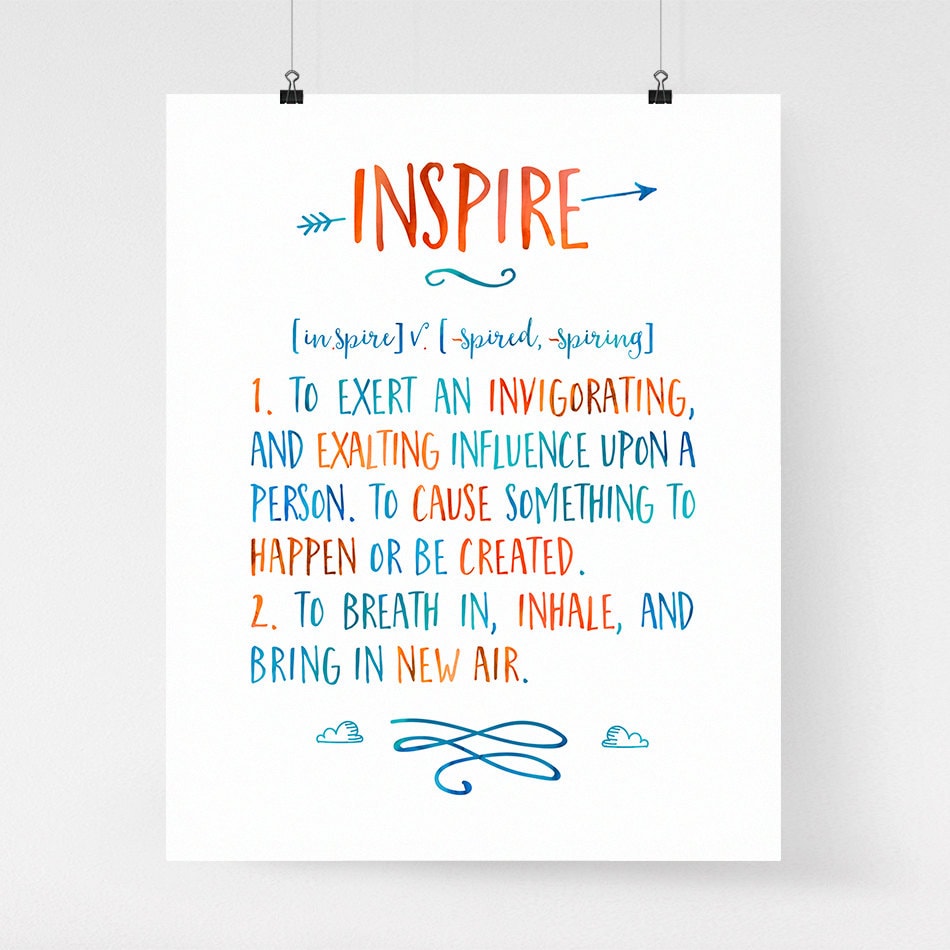 INSPIRE
[in.spire] v. [-spired, -spiring]
1. TO EXERT AN INVIGORATING,
AND EXALTING INFLUENCE UPON A
PERSON. TO CAUSE SOMETHING TO
HAPPEN OR BE CREATED.
2. TO BREATH IN, INHALE, AND
BRING IN NEW AIR.